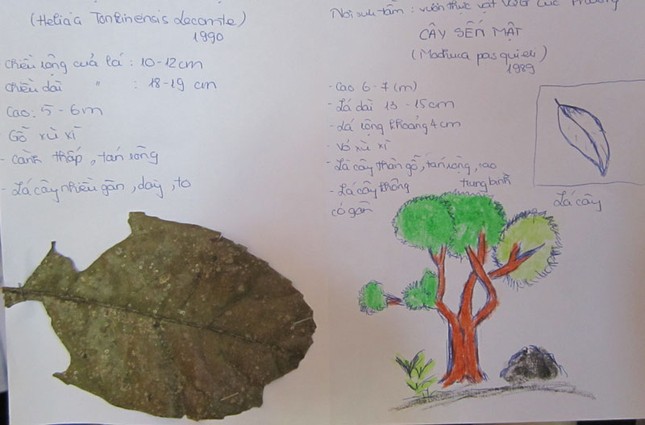 (Helicia Tonkinensis Lecomte)
1990
chiều rộng của lá : 10-12cm
chiều dài " : 18-19 cm
Cao: 5 - 6m
Gỗ xù xì
- cành thấp, tán rộng
- Lá cây nhiều gân, dày, to
Nơi sưu tầm : vườn thực vật Vườn Cúc Phương
CÂY SẾN MẬT
(Madhuca pasquieri)
1989
- Cao 6-7 (m)
- Lá dài 13 - 15cm
- Lá rộng khoảng 4cm
- Vỏ xù xì
- Lá cây thân gỗ, tán rộng, cao
trung bình
- Lá cây không
có gân
Lá cây